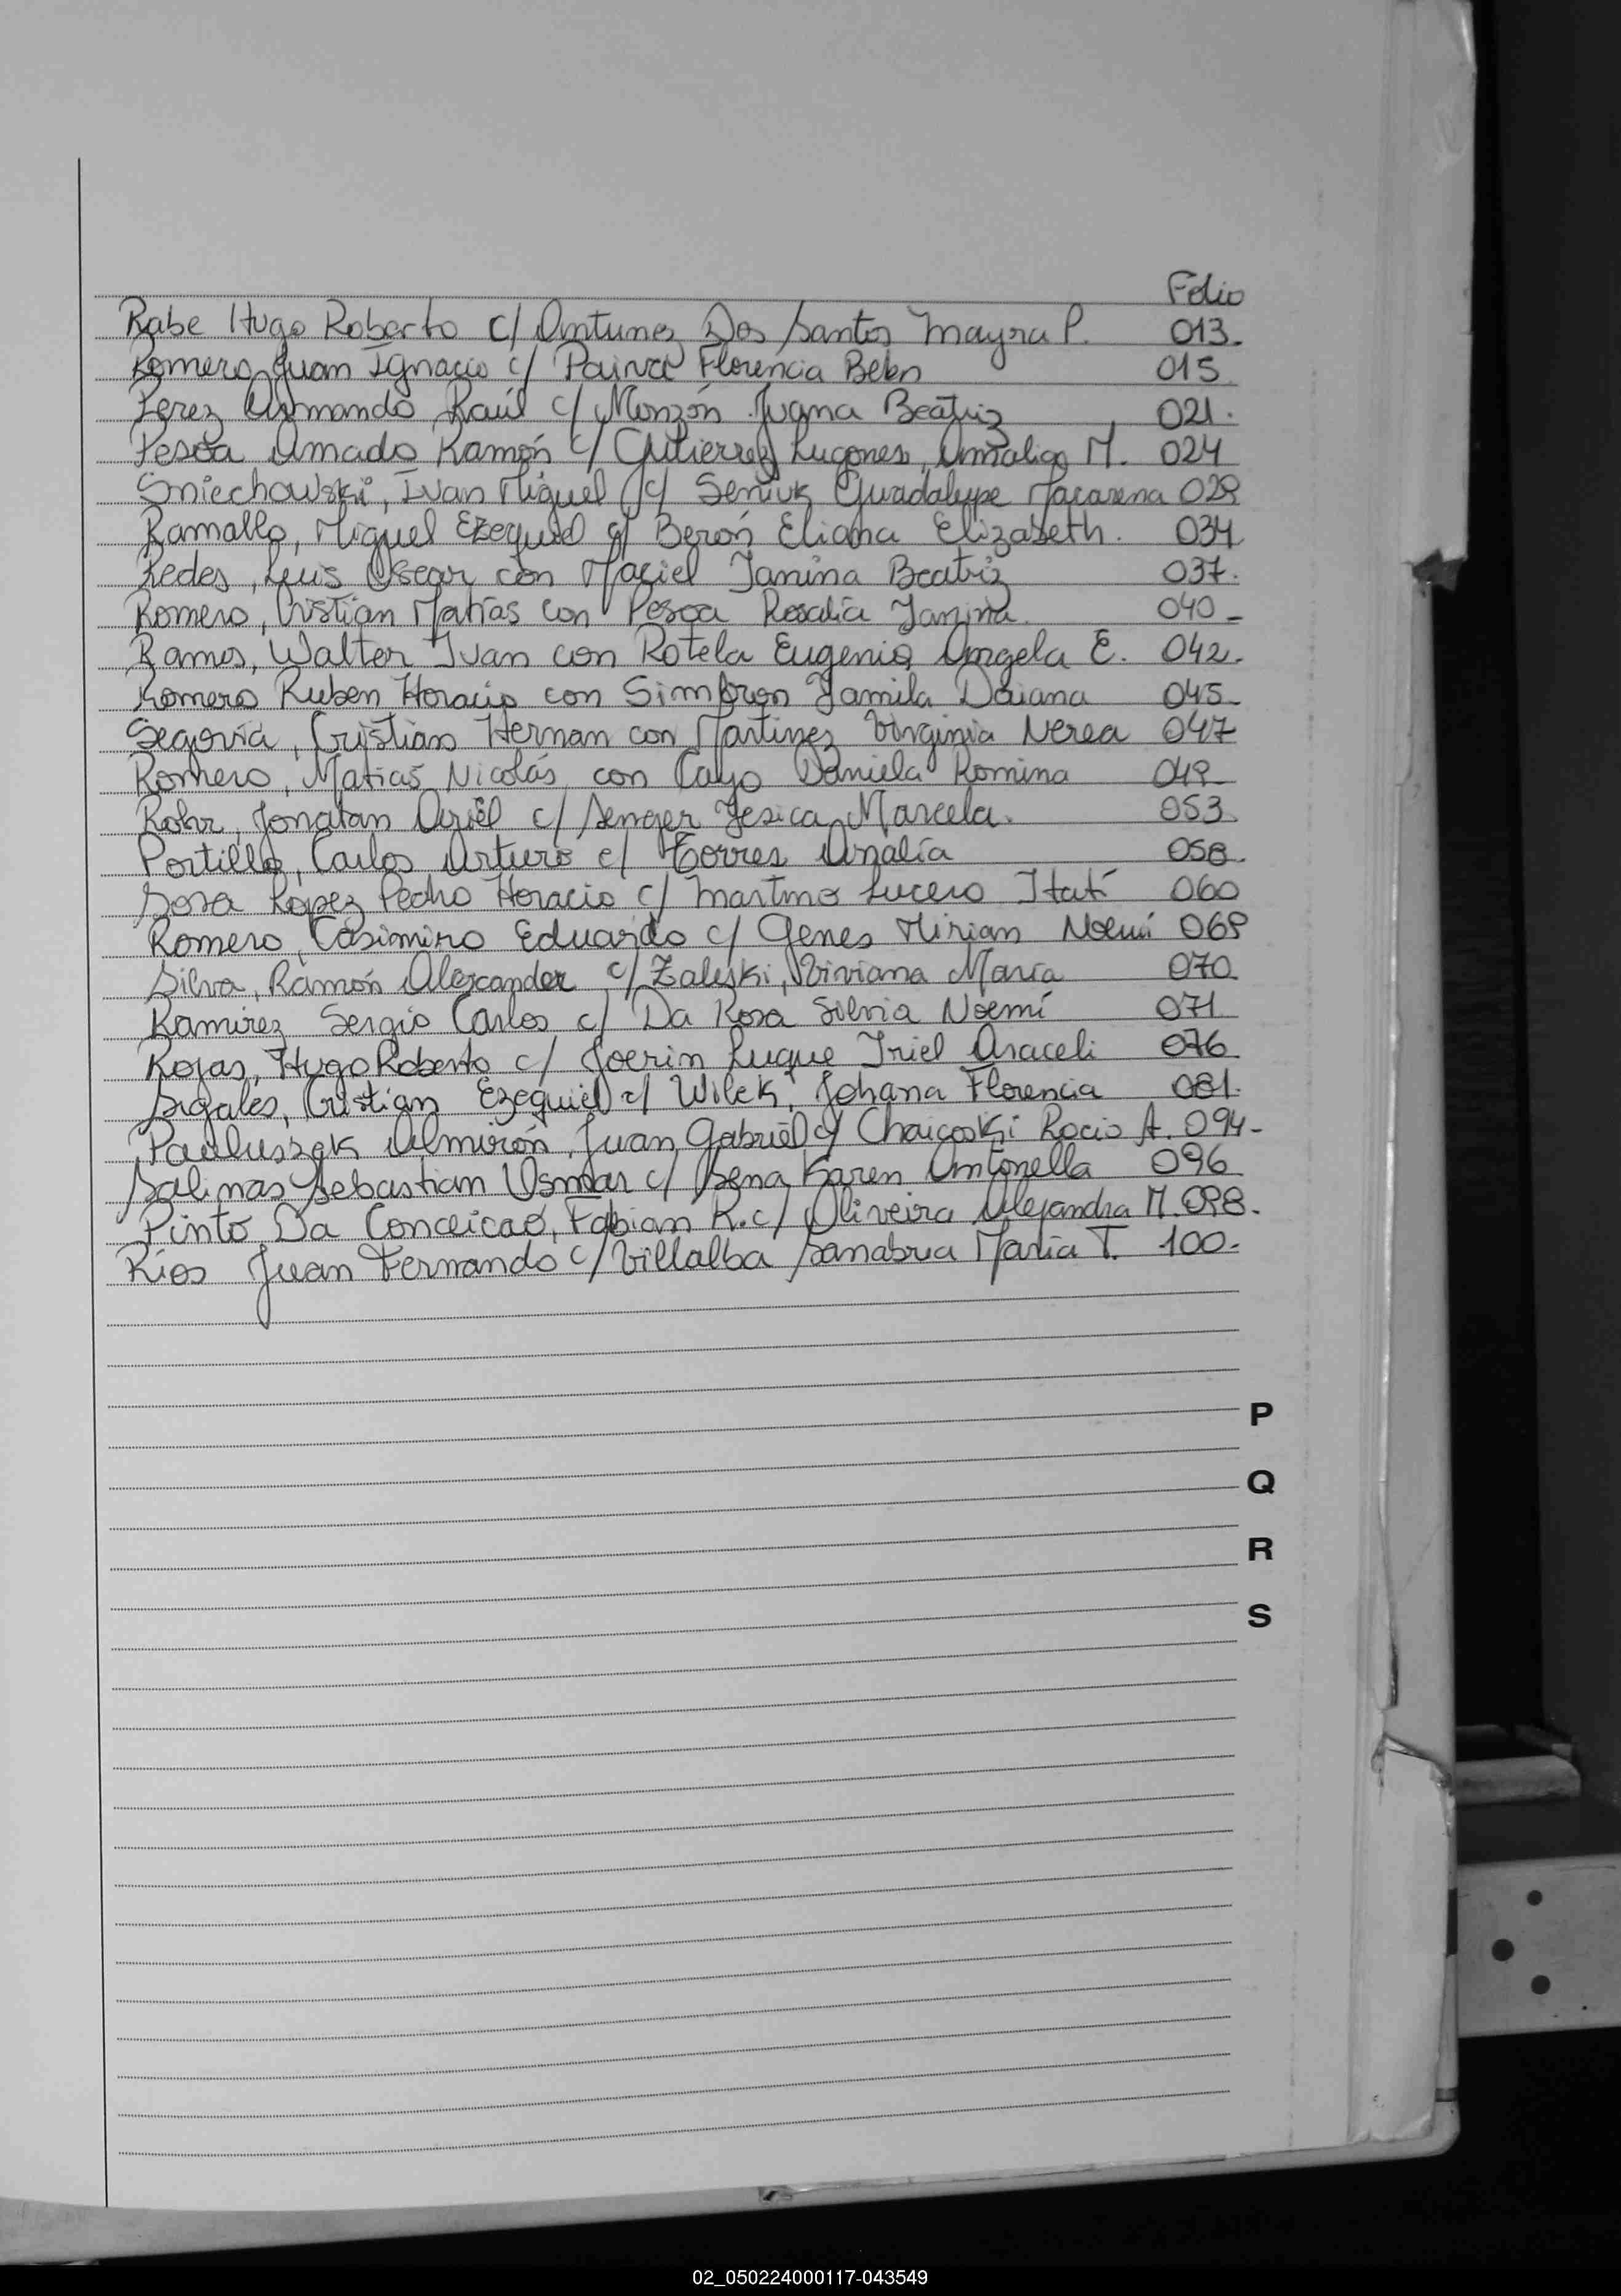 Folio
Rabe Hugo Roberto c/ Antunez Dos Santos Mayra P. 013.
Romero Juan Ignacio c/ Paiva Florencia Belen 015
Perez Armando Raúl c/ Monzón Juana Beatriz 021.
Pesoa Amado Ramón c/ Gutierrez Lugones, Amalia M. 024
Sniechowski, Ivan Miguel c/ Seniuk Guadalupe Macarena 029
Ramallo, Miguel Ezequiel c/ Berón Eliana Elizabeth. 034
Redes, Luis Oscar con Maciel Janina Beatriz 037.
Romero, Cristian Matías con Pesoa Rosalía Janina 040-
Ramos, Walter Ivan con Rotela Eugenia Angela E. 042.
Romero Ruben Horacio con Simbron Jamila Daiana 045-
Segovia, Cristian Hernan con Martinez Virginia Nerea 047
Romero, Matias Nicolás con Cayo Daniela Romina 049
Rohr, Jonatan Uziel c/ Senger Jesica Marcela. 053
Portillo, Carlos Arturo c/ Torres Analía 058.
Sosa Lopez Pedro Horacio c/ Martino Lucero Itatí 060
Romero, Casimiro Eduardo c/ Genes Mirian Noemí 069
Silva, Ramón Alexander c/ Zaleski, Viviana María 070
Ramirez Sergio Carlos c/ Da Rosa Silvia Noemí 071
Rojas, Hugo Roberto c/ Joerin Luque Iriel Araceli 076
Sigales, Cristian Ezequiel c/ Wilek, Johana Florencia 081.
Pauluszek Almirón, Juan Gabriel c/ Chaicoski Rocio A. 094-
Salinas Sebastian Osmar c/ Sena Karen Antonella 096
Pinto Da Conceicao, Fabian R. c/ Oliveira Alejandra M. 098.
Rios Juan Fernando c/ Villalba Sanabria Maria T. 100-
P
Q
R
S
02_050224000117-043549